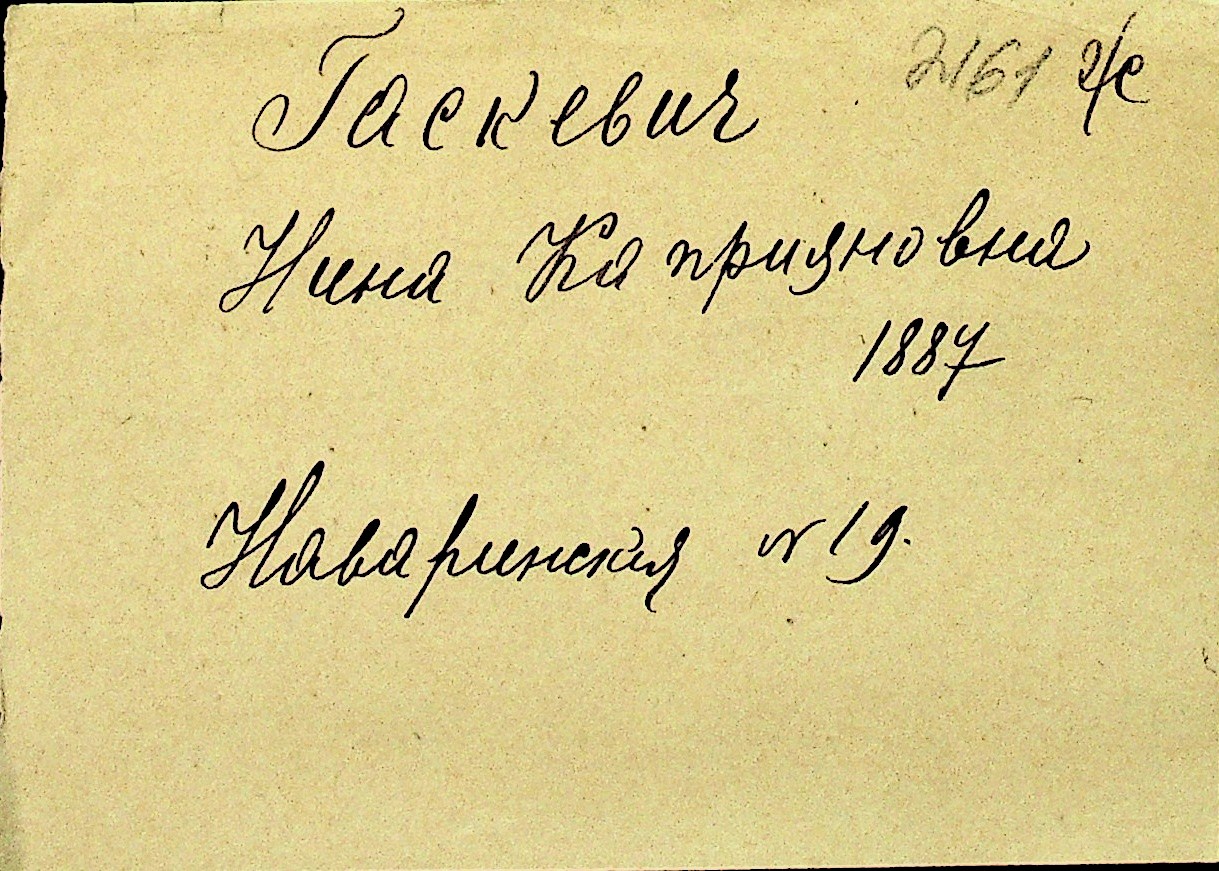 Гаскевич 2161 г/с
Нина Каприяновна
1887
Наваринская № 19.